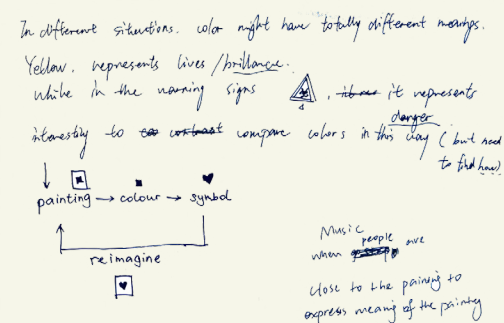 In different situations, color might have totally different meanings.
Yellow, represents lives / brilliance.
while in the warning signs , it represents
danger
interestily to compare colors in this way (but need
to find how)
painting → colour → symbol
reimagine
Music
when people are
close to the painting to
express meaning of the painting